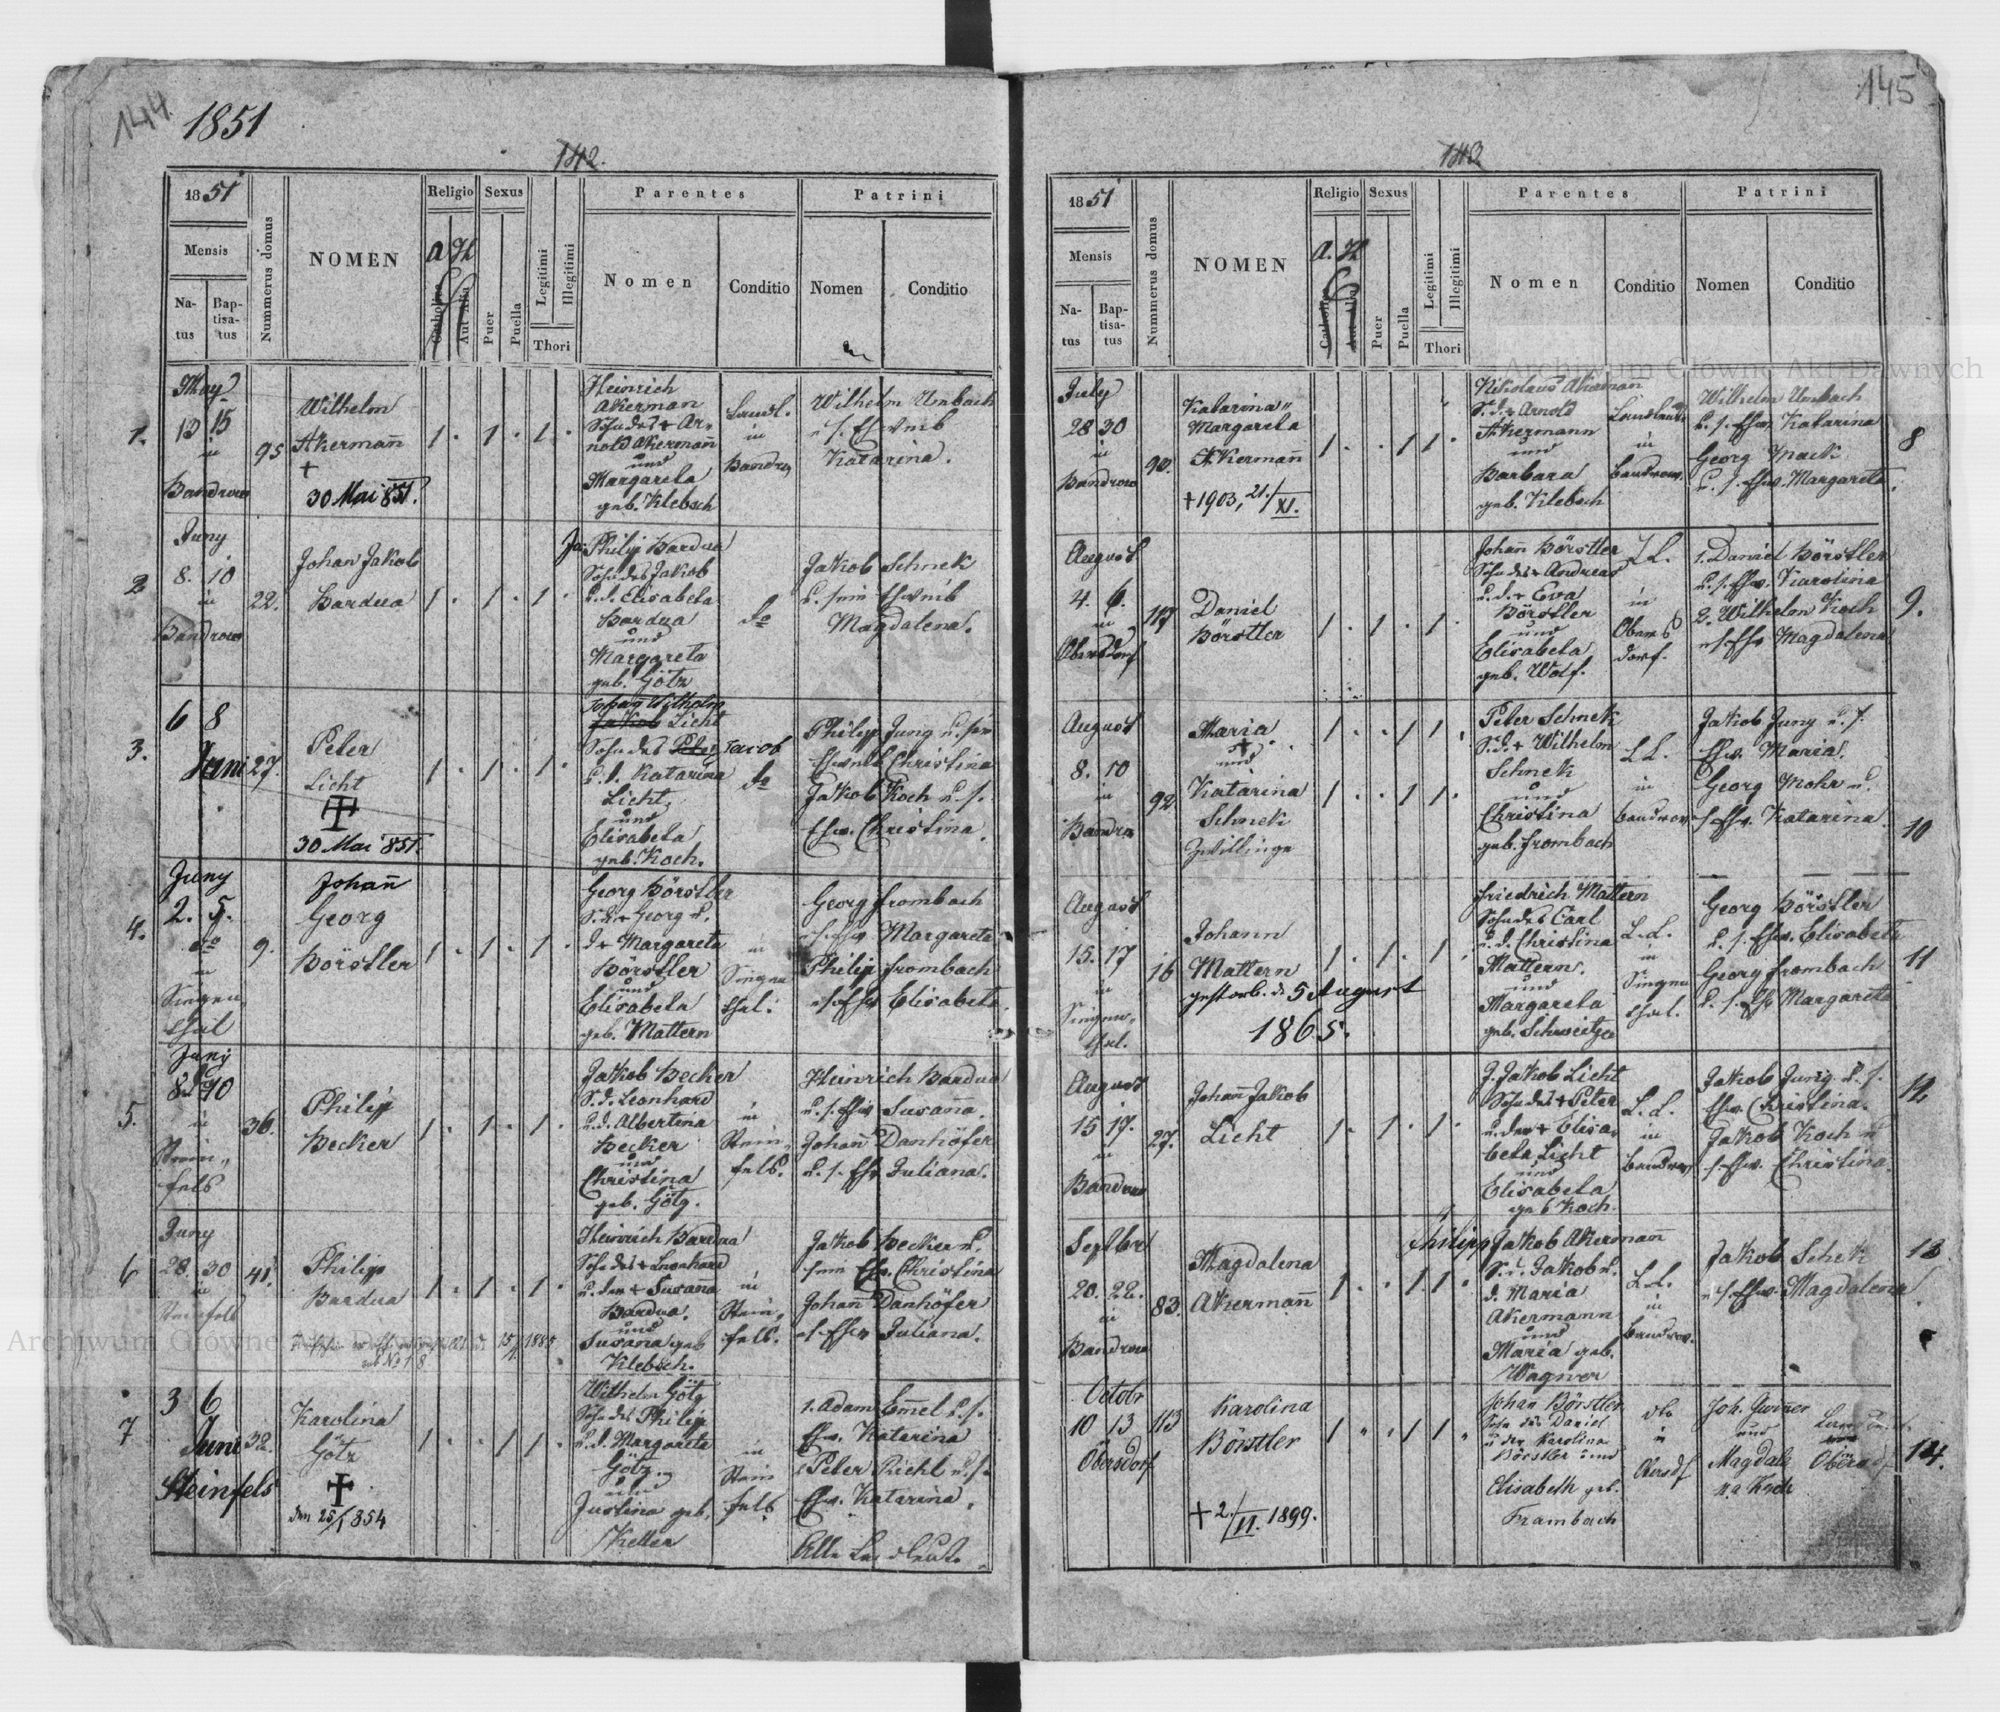 144
1851
142.
1851
Mensis
Na-
tus
Bap-
tisa-
tus
Nummerus domus
NOMEN
Religio
A.
H
Catholica
Aut Alia
Sexus
Puer
Puella
Legitimi
Illegitimi
Thori
Parentes
Nomen
Conditio
Patrini
Nomen
Conditio
1.
May
13 15
in
Bandrow
95
Wilhelm
Akermann
+
30 Mai 851.
1 . 1 . 1 .
Heinrich
Akerman
Sohn des + Ar-
nold Akermann
und
Margareta
geb. Klebsch
Landl.
in
Bandro
Wilhelm Umbach
u. s. Ehweib
Katarina.
2
Juny
8. 10
in
Bandrow
22.
Johan Jakob
Bardua
1 . 1 . 1 .
Ja: Philip Bardua
Sohn des Jakob
u. d. Elisabeta
Bardua
und
Margareta
geb. Götz
do
Jakob Schnek
u. sein Ehweib
Magdalena.
3.
6 8
Juni
27.
Peter
Licht
30 Mai 851.
1 . 1 . 1 .
Johan Wilhelm
Jakob Licht
Sohn des Peter Jacob
u. d. Katarina
Licht,
und
Elisabeta
geb. Koch.
do
Philip Jung u. sein
Ehweib Christina
Jakob Koch u. s.
Ehw. Christina.
4.
Juny
2. 5.
do
in
Singen
thal
9.
Johann
Georg
Börstler
1 . 1 . 1 .
Georg Börstler
S. d. + Georg u.
d + Margareta
Börstler
und
Elisabeta
geb. Mattern
in
Singen
thal.
Georg Frombach
u. s. Ehw Margareta
Philip Frombach
u. s. Ehw Elisabeta
5.
Juny
8. 10
in
Stein,,
fels
36.
Philip
Becker
1 . 1 . 1 .
Jakob Becker
S. d. Leonhard
u. d. Albertina
Becker
und
Christina
geb. Götz.
in
Stein,,
fels.
Heinrich Bardua
u. s. Ehw Susanna.
Johann Danhöfer
u. s. Ehw Juliana.
6
Juny
28. 30
in
Steinfels
41.
Philip
Bardua
15 1885
1 . 1 . 1 .
Heinrich Bardua
Sohn des + Leonhard
u. der + Susanna
Bardua.
und
Susana geb
Klebsch.
in
Stein,,
fels.
Jakob Becker u.
sein Ehw. Christina
Johann Danhöfer
u. s. Ehw Juliana.
7
3 6
Juni
Steinfels
32.
Karolina
Götz
den 25/1 854
1 . . 1 1 .
Wilhelm Götz
Sohn des Philip
u. d. Margareta
Götz.
und
Justina geb.
Keller
in
Stein
fels
1. Adam Emel u. s.
Ehw. Katarina
Peter Richt u. s.
Ehw. Katarina.
Alle Landleute
145
143
1851
Mensis
Na-
tus
Bap-
tisa-
tus
Nummerus domus
NOMEN
Religio
A.
H
Catholica
Aut Alia
Sexus
Puer
Puella
Legitimi
Illegitimi
Thori
Parentes
Nomen
Conditio
Patrini
Nomen
Conditio
Archiwum Główne Akt Dawnych
July
28 30
in
Bandrow
90.
Katarina
Margareta
Akermann
+ 1903, 21./XI.
1 . . 1 1 .
Nikolaus Akerman
S. d. + Arnold
Akermann
und
Barbara
geb. Klebsch
Landleute
in
Bandrow.
Wilhelm Umbach
u. s. Ehw. Katarina
Georg Mack
u. s. Ehw. Margareta.
8
August
4. 6.
in
Obersdorf
117
Daniel
Börstler
1 . 1 . 1 .
Johann Börstler
Sohn des + Andreas
u. d. + Eva
Börstler
und
Elisabeta
geb. Wolf.
L L.
in
Obers
dorf.
1. Daniel Börstler
u. s. Ehw. Karolina
2. Wilhelm Koch
u. s. Ehw Magdalena
9.
August
8. 10
in
Bandro
92
Maria
+
und
Katarina
Schnek
Zwillinge
1 . . 1 1 .
1 . . 1 1 .
Peter Schnek
S. d. + Wilhelm
Schnek
und
Christina
geb. Frombach
L L.
in
Bandrow
Jakob Jung u. s.
Ehw. Maria.
Georg Mohr u.
s. Ehw. Katarina
10
August
15. 17
in
Singen,
thal.
16
Johann
Mattern
gestorb. d. 5 August
1865.
1 . 1 . 1 .
Friedrich Mattern
Sohn des Carl
u. d. Christina
Mattern.
und
Margareta
geb. Schweitzer
L. L.
in
Singen
thal.
Georg Börstler
u. s. Ehw. Elisabeta
Georg Frombach
u. s. Ehw Margareta
11
August
15 17.
in
Bandrow
27.
Johann Jakob
Licht
1 . 1 . 1 .
J. Jakob Licht
Sohn des + Peter
u. der + Elisa,
beta Licht
und
Elisabeta
geb Koch.
L. L.
in
Bandrow
Jakob Jung u. s.
Ehw. Christina.
Jakob Koch u
s. Ehw. Christina.
12
Septber
20. 22.
in
Bandrow
83.
Magdalena
Akermann
1 . . 1 1 .
Philipp Jakob Akermann
S. d. Jakob u.
d. Maria
Akermann
und
Maria geb.
Wagner
L. L.
in
Bandrow.
Jakob Schek
u. s. Ehw. Magdalena.
13
Octobr
10 13
Obersdorf
113
Karolina
Börstler
+ 2./II. 1899.
1 . . 1 1 .
Johan Börstler
Sohn des Daniel
u der Karolina
Börstler und
Elisabeth geb.
Frambach
dto
in
Obersdf
Joh. Gweier
und
Magdale
in
Obersdf
14.
Archiwum Główne Akt Dawnych